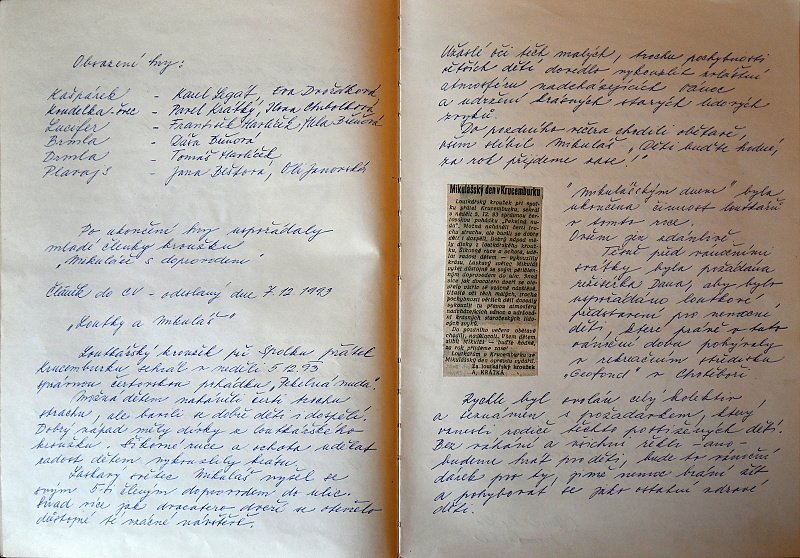 Obsazení hry:
Kašpárek - Karel Legát, Eva Dvořáková
Koudelka-švec - Pavel Krátký, Ilona Chuboltková
Lucifer - František Havlíček, Mila Bičnová
Brmla - Dáša Bičnová
Drmla - Tomáš Havlíček
Plavajs - Jana Bištová, Ola Janovská
Po ukončení hry uspořádaly
mladé členky kroužku
„Mikuláše s doprovodem"
Článek do CV - odeslaný dne 7.12.1993
„Loutky a Mikuláš"
Loutkářský kroužek při Spolku přátel
Krucemburku sehrál v neděli 5.12.93
správnou čertovskou pohádku „Pekelná nuda".
Možná dětem naháněli čerti trochu
strachu, ale bavili se dobře děti i dospělí.
Dobrý nápad měly dívky z loutkářského
kroužku. Šikovné ruce a ochota udělat
radost dětem vykouzlily krásu.
Laskavý světec Mikuláš vyšel se
svým 5-ti členným doprovodem do ulic.
Snad více jak dvacatero dveří se otevřelo
důstojné té vzácné návštěvě.
Užaslé oči těch malých, trochu pochybností
větších dětí dovedlo vykouzlit zvláštní
atmosféru nadcházejících vánoc
a udržení krásných starých lidových
zvyků.
Do pozdního večera chodili obětavě,
všem slíbil Mikuláš „Děti buďte hodné,
za rok přijdeme zase!"
Mikulášský den v Krucemburku
Loutkářský kroužek při spol-
ku přátel Krucemburku, sehrál
v neděli 5. 12. 93 správnou čer-
tovskou pohádku „Pekelná nu-
da". Možná naháněli čerti tro-
chu strachu, ale bavili se dobře
děti i dospělí. Dobrý nápad mě-
ly dívky z loutkářského krouž-
ku. Šikovné ruce a ochota, udě-
lat radost dětem - vykouzlily
krásu. Laskavý světec Mikuláš
vyšel důstojně se svým pětičlen-
ným doprovodem do ulic. Snad
více jak dvacatero dveří se ote-
vřelo vzácné návštěvě.
Užaslé oči těch malých, trochu
pochybností větších dětí dovedly
vykouzlit tu pravou atmosféru
nadcházejících vánoc a udržová-
ní krásných staročeských lido-
vých zvyků.
Do pozdního večera obětavě
chodili, nadělovali. Všem dětem
slíbil Mikuláš - buďte hodné,
za rok přijdeme zase!
Loutkářům v Krucemburku se
Mikulášský den opravdu vydařil.
Za loutkářský kroužek
A. KRÁTKÁ
"Mikulášským dnem" byla
ukončena činnost loutkářů
v tomto roce.
Ovšem jen zdánlivě.
Těsně před vánočními
svátky byla požádána
režisérka Dana, aby bylo
uspořádáno loutkové
představení pro nemocné
děti, které právě v tuto
vánoční dobu pobývaly
v rekreačním středisku
„Geofond" v Chotěboři
Rychle byl svolán celý kolektiv,
a seznámen s požadavkem, který
vznesli rodiče těchto postižených dětí.
Bez váhání a všichni řekli - ano -
budeme hrát pro děti, bude to vánoční
dárek pro ty, jimž nemoc brání žít
a pohybovat se jako ostatní zdravé
děti.